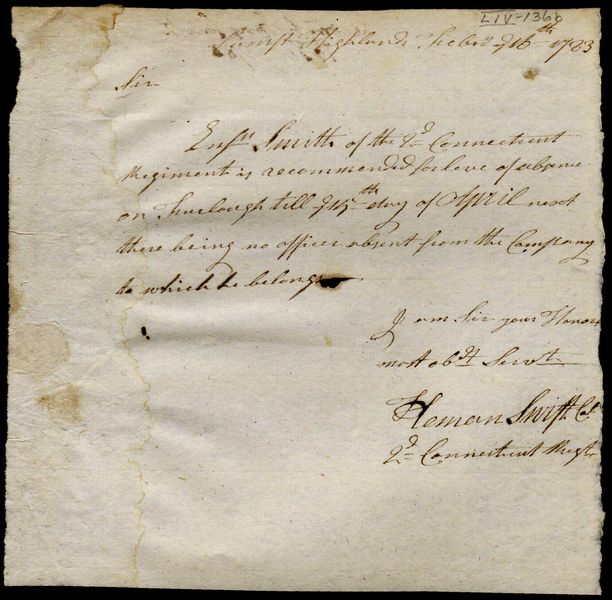 LIV-1366
Camp Highlands Febry ye 16th 1783
Sir
Ensn Smith of the 2d Connecticut
Regiment is recommended for leve of absence
on Furlough till ye 15th day of April next
there being no officer absent from the Company
to which he belongs
I am Sir your Honors
most obdt Servt
Heman Swift Col
2d Connecticut Regt